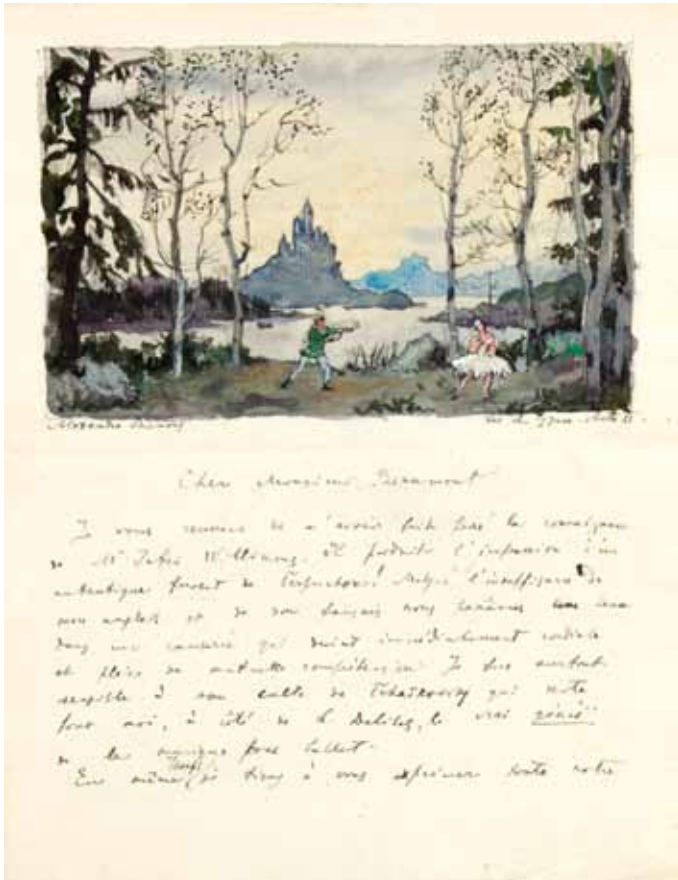 Alexandre Benois
Cher Monsieur
Je vous remercie de m'avoir fait faire la connaissance
de Mr John Williamson. Il produit l'impression d'un
authentique fervent de Malgré l'insuffisance de
mon anglais et de son français nous
dans une causerie qui devint immédiatement cordiale
et pleine de mutuelle compréhension. Je fus surtout
sensible à son culte de Tchaïkovsky qui reste
pour moi, à côté de L. Delibes, le vrai génie
de la musique pour ballet.
En même temps je tiens à vous exprimer toute notre